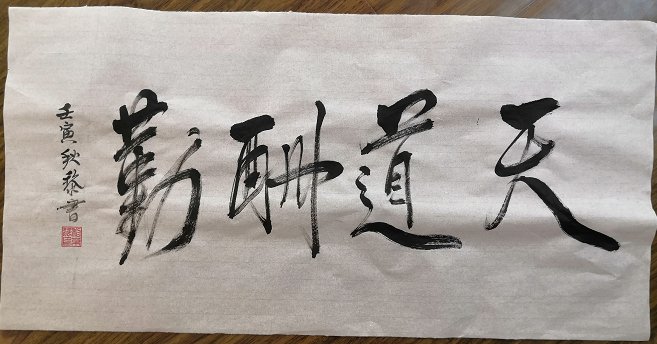 天道酬勤
壬寅秋黎書